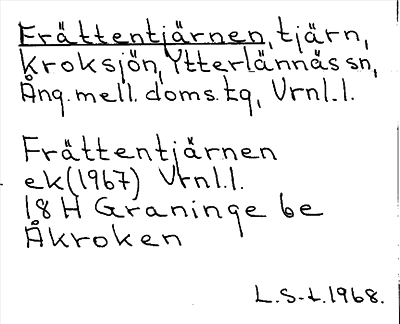 Frättentjärnen, tjärn,
Kroksjön, Ytterlännäs sn,
Ång.mell.doms.tg, Vrnl.l.
Frättentjärnen
ek(1967) Vrnl.l.
18 H Graninge 6e
Åkroken
L.S-t.1968.